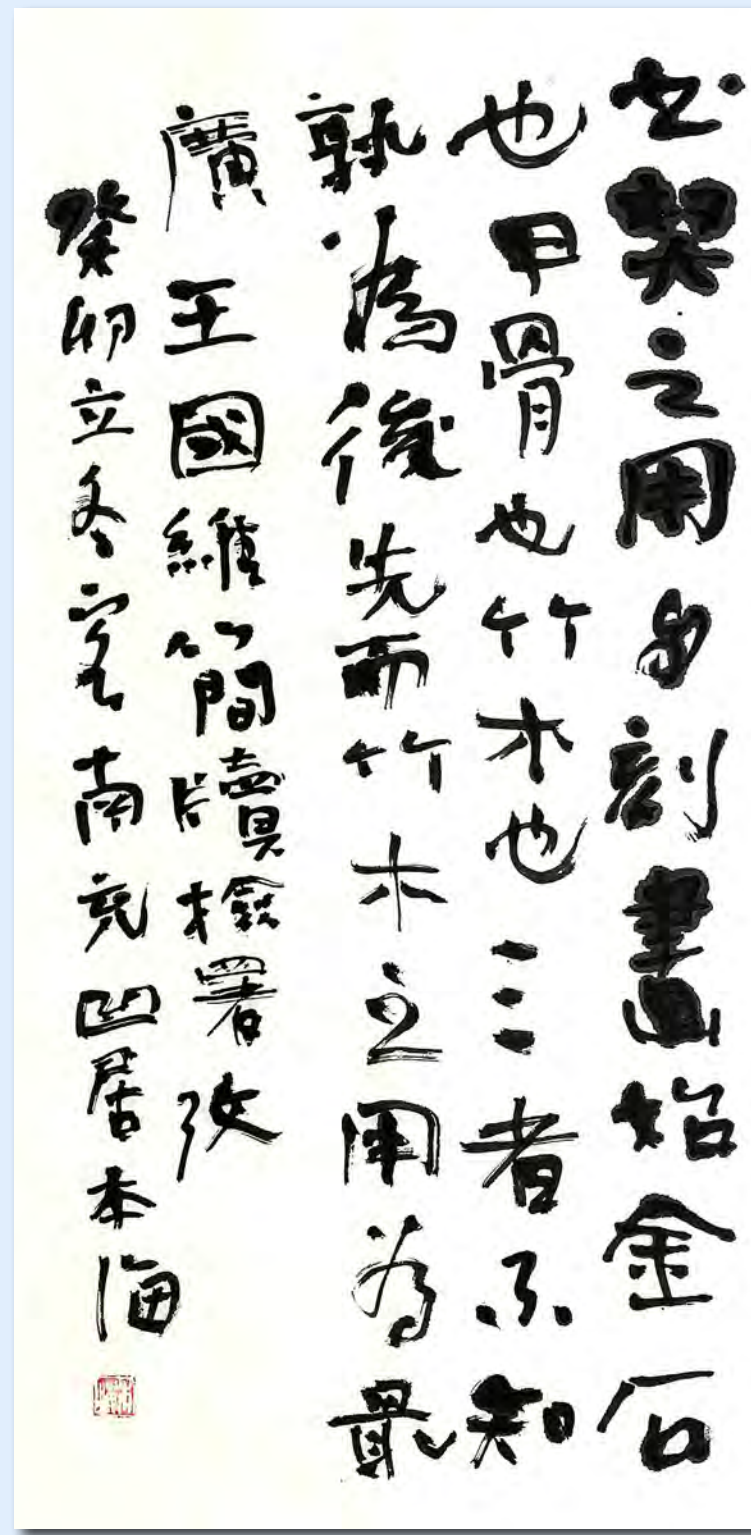 书契之用自刻畫始金石
也甲骨也竹木也三者不知
孰為後先而竹木之用為最
廣王國維簡牘檢署攷
癸卯立冬客南充凹居本海